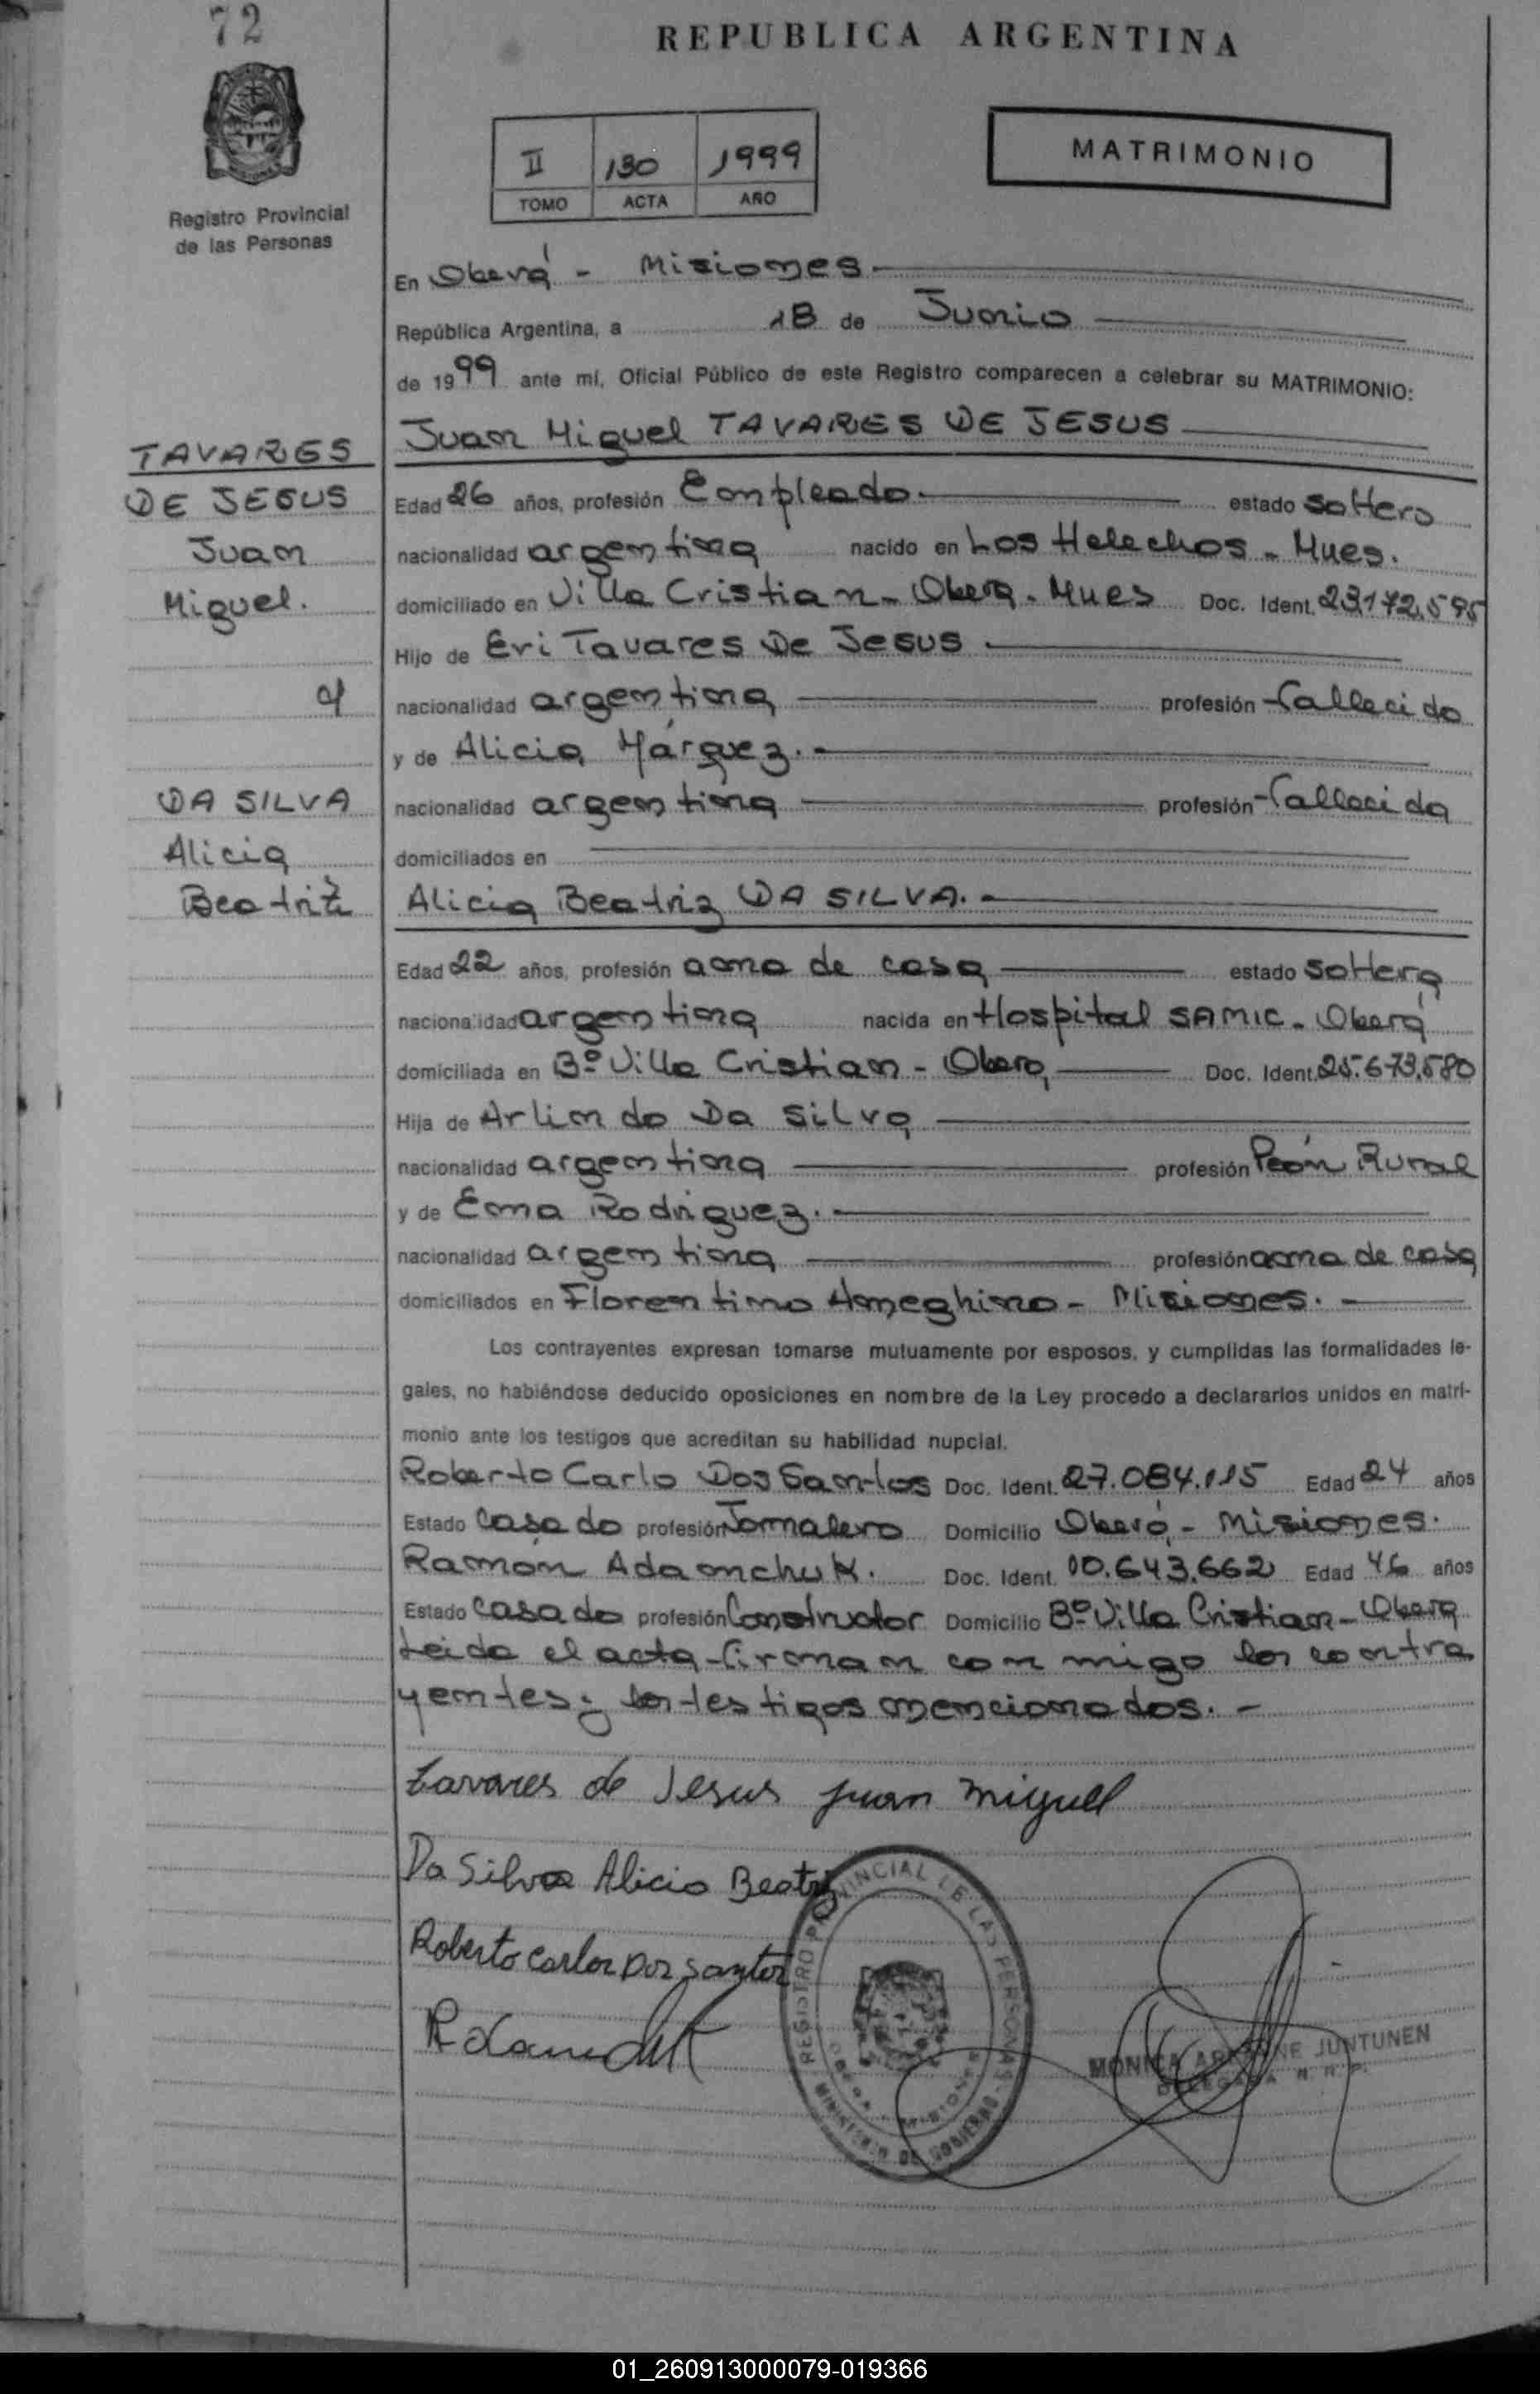 72
REPUBLICA ARGENTINA
Registro Provincial
de las Personas
II 130 1999
TOMO ACTA AÑO
MATRIMONIO
En Oberá - Misiones.-
República Argentina, a 18 de Junio
de 1999 ante mí, Oficial Público de este Registro comparecen a celebrar su MATRIMONIO:
TAVARES
DE JESUS
Juan
Miguel.
y
DA SILVA
Alicia
Beatriz
Juan Miguel TAVARES DE JESUS
Edad 26 años, profesión Empleado.- estado soltero
nacionalidad argentina nacido en Los Helechos - Mnes.
domiciliado en Villa Cristian - Oberá - Mnes Doc. Ident. 23.172.595
Hijo de Eri Tavares De Jesus
nacionalidad argentina profesión fallecido
y de Alicia Márquez.-
nacionalidad argentina profesión fallecida
domiciliados en
Alicia Beatriz DA SILVA.-
Edad 22 años, profesión ama de casa estado soltera
nacionalidad argentina nacida en Hospital SAMIC - Oberá
domiciliada en Bº Villa Cristian - Oberá Doc. Ident. 25.673.580
Hija de Arlindo Da Silva
nacionalidad argentina profesión Peón Rural
y de Ema Rodriguez.-
nacionalidad argentina profesión ama de casa
domiciliados en Florentino Ameghino - Misiones.-
Los contrayentes expresan tomarse mutuamente por esposos, y cumplidas las formalidades le-
gales, no habiéndose deducido oposiciones en nombre de la Ley procedo a declararlos unidos en matri-
monio ante los testigos que acreditan su habilidad nupcial.
Roberto Carlo Dos Santos Doc. Ident. 27.084.115 Edad 24 años
Estado casado profesión Jornalero Domicilio Oberá - Misiones.
Ramón Adamchuk. Doc. Ident. 10.643.662 Edad 46 años
Estado casado profesión Constructor Domicilio Bº Villa Cristian - Oberá
Leida el acta firman con migo los contra
yentes y los testigos mencionados.-
Tavares de Jesus Juan Miguel
Da Silva Alicia Beatriz
Roberto Carlos Dos Santos
REGISTRO PROVINCIAL DE LAS PERSONAS
OBERA - MISIONES
MINISTERIO DE GOBIERNO
MONICA ARIANE JUNTUNEN
DELEGADA R. P.
01_260913000079-019366